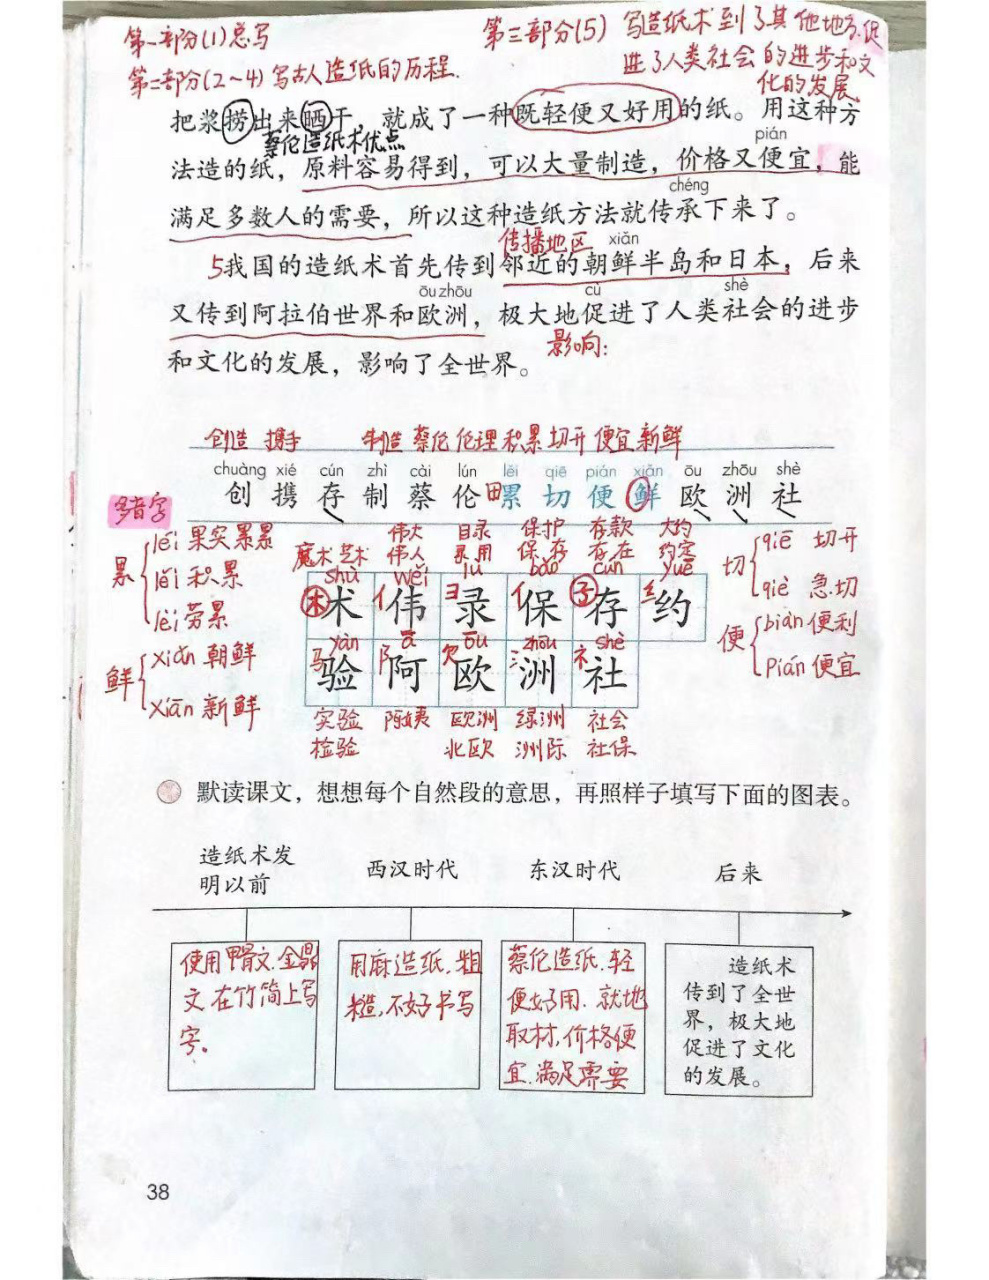 第一部分(1)总写
第二部分(2~4)写古人造纸的历程.
第三部分(5) 写造纸术到了其他地方,促
进了人类社会的进步和文
化的发展.
把浆捞出来晒干，就成了一种既轻便又好用的纸。用这种方
蔡伦造纸术优点
pián
法造的纸，原料容易得到，可以大量制造，价格又便宜，能
chéng
满足多数人的需要，所以这种造纸方法就传承下来了。
传播地区
xiǎn
5我国的造纸术首先传到邻近的朝鲜半岛和日本，后来
ōu zhōu cù shè
又传到阿拉伯世界和欧洲，极大地促进了人类社会的进步
和文化的发展，影响了全世界。
影响:
创造 携手 制造 蔡伦 伦理 积累 切开 便宜 新鲜
chuàng xié cún zhì cài lún lěi qiē pián xiǎn ōu zhōu shè
创 携 存 制 蔡 伦 田累 切 便 鲜 欧 洲 社
多音字
累 léi 果实累累
lěi 积累
lèi 劳累
鲜 xiǎn 朝鲜
xiān 新鲜
伟大 目录 保护 存款 大约
魔术 艺术 伟人 录用 保存 存在 约定
shù wěi lù bǎo cún yuē
木 亻 彐 亻 子 纟
术 伟 录 保 存 约
yàn ā ōu zhōu shè
马 阝 欠 氵 礻
验 阿 欧 洲 社
实验 阿姨 欧洲 绿洲 社会
检验 北欧 洲际 社保
切 qiē 切开
qiè 急切
便 biàn 便利
pián 便宜
默读课文，想想每个自然段的意思，再照样子填写下面的图表。
造纸术发
明以前
西汉时代
东汉时代
后来
使用甲骨文.金鼎
文.在竹简上写
字.
用麻造纸.粗
糙,不好书写
蔡伦造纸.轻
便好用.就地
取材,价格便
宜.满足需要
造纸术
传到了全世
界，极大地
促进了文化
的发展。
38